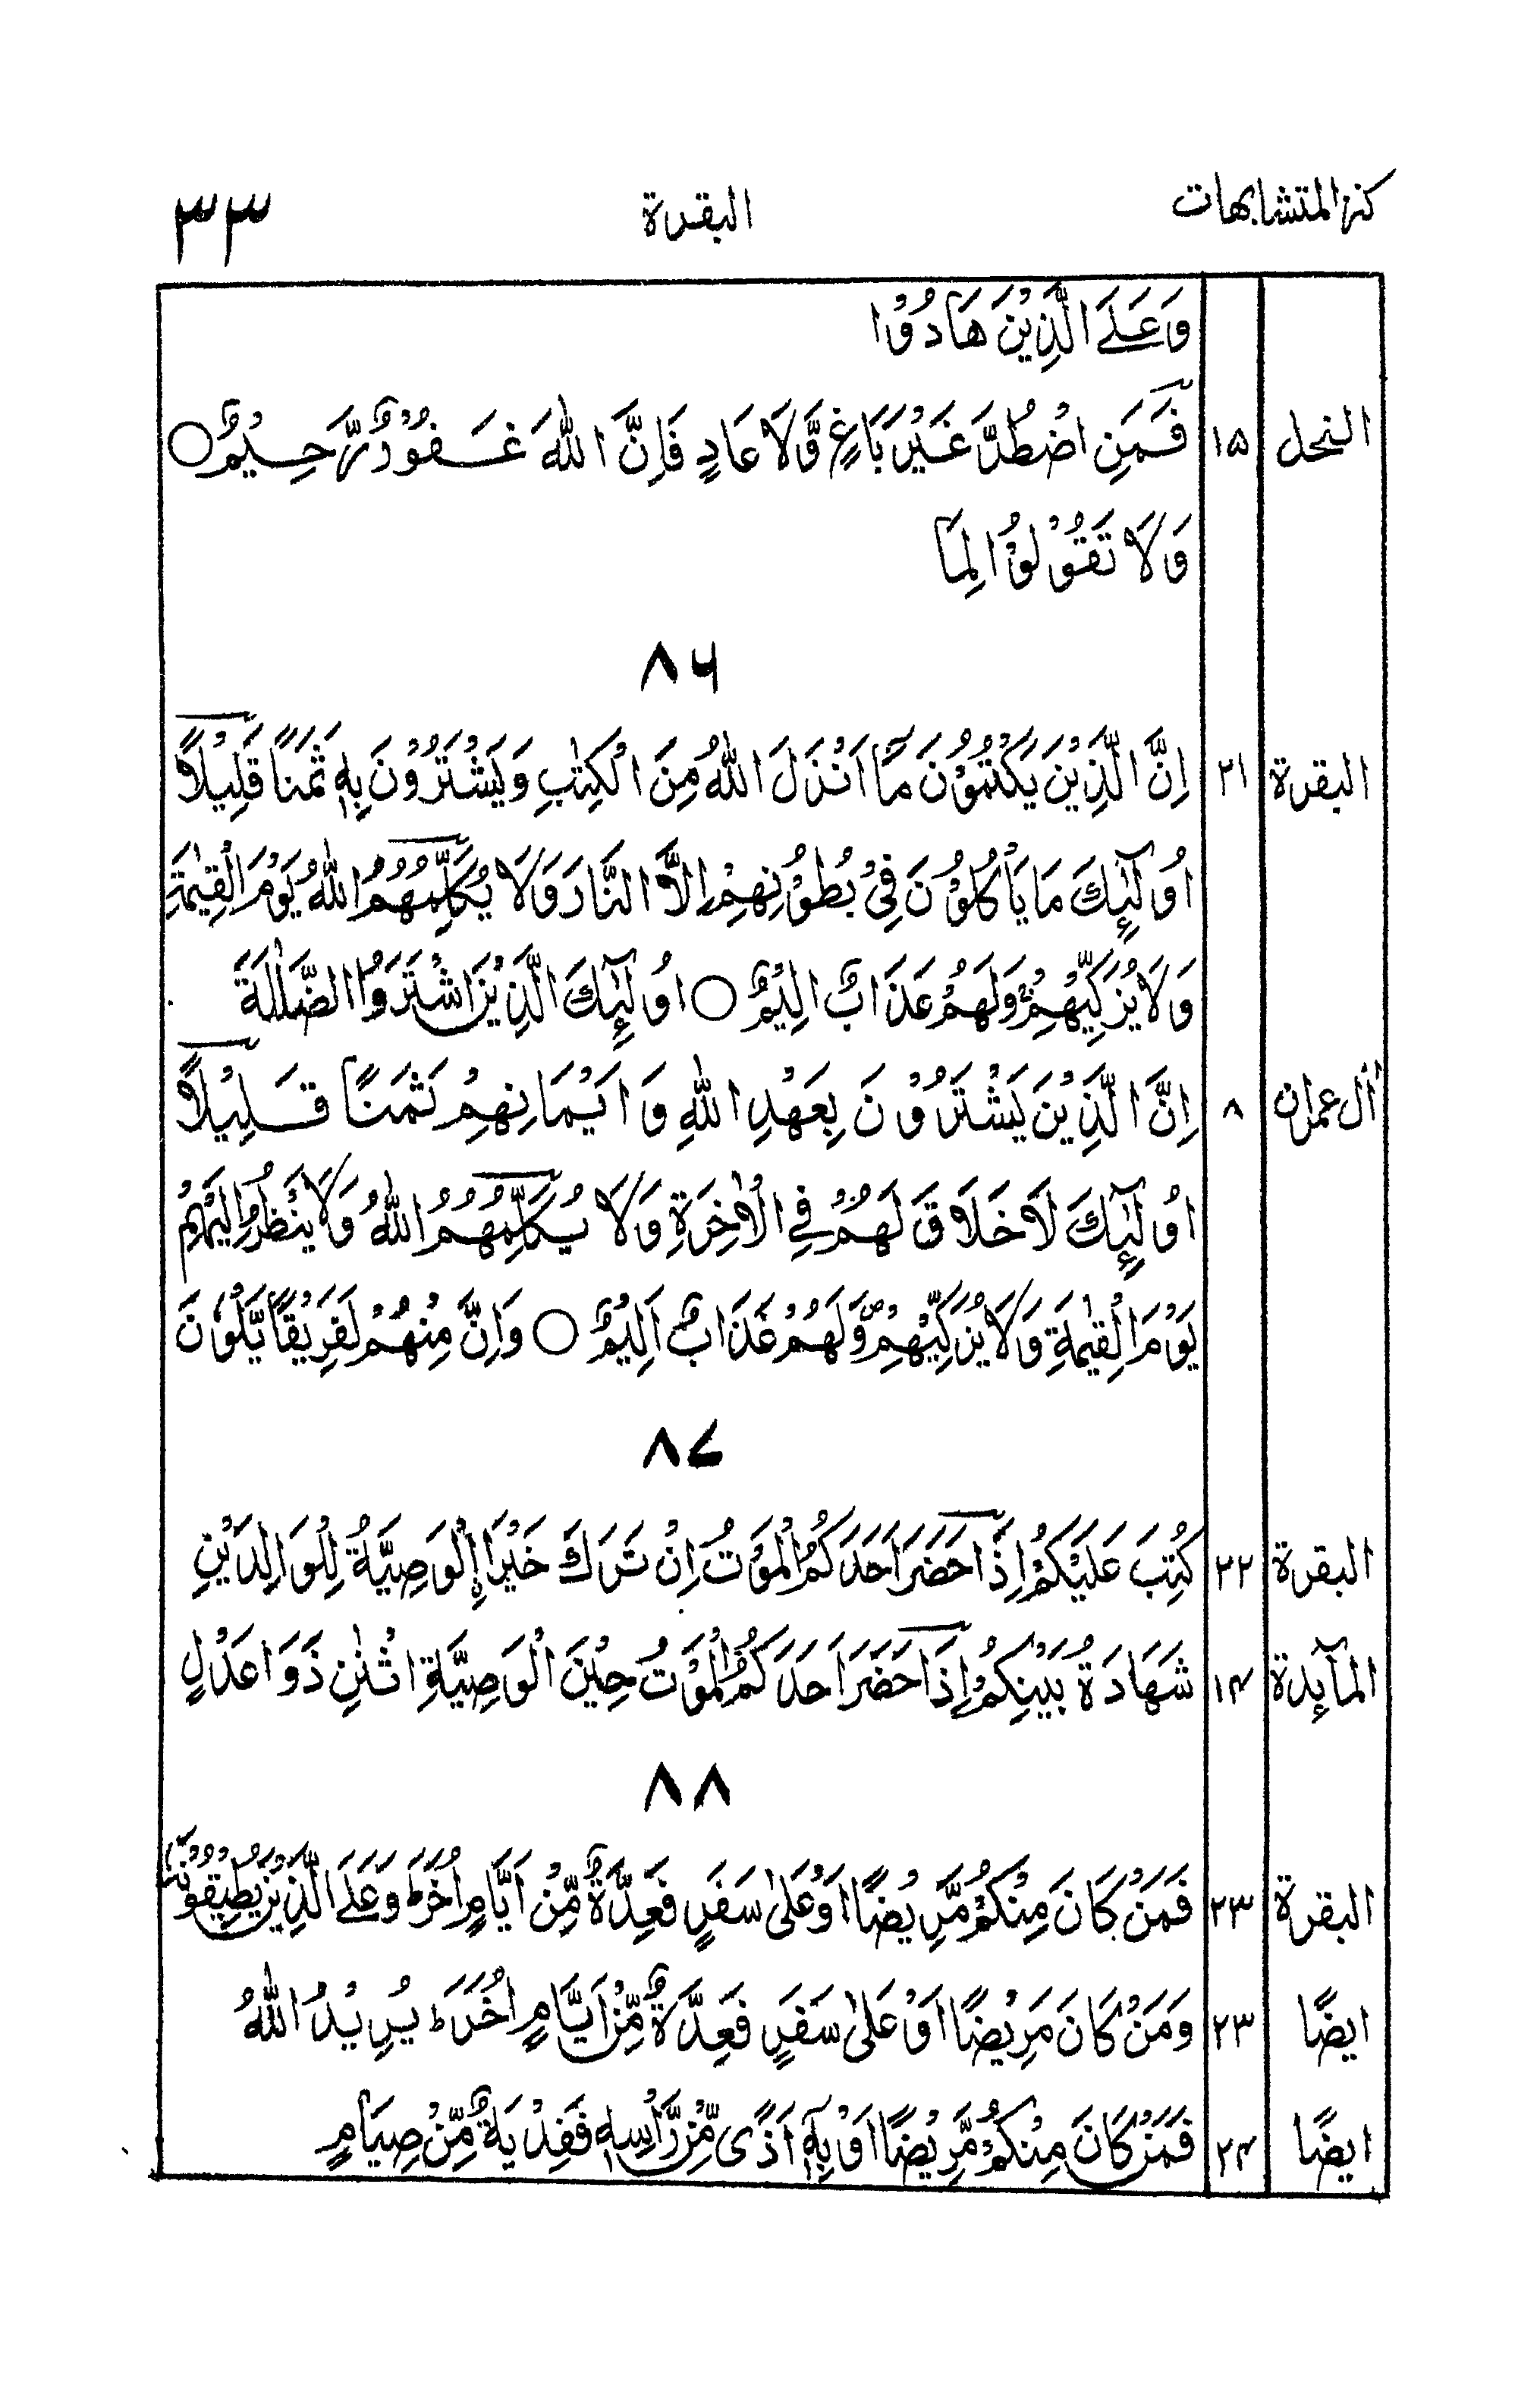 كنز المتشابهات البقرة ۳۳
وَعَلَے الَّذِيْنَ هَادُوْا
النحل ۱۵ فَمَنِ اضْطُرَّ غَيْرَ بَاغٍ وَّلَا عَادٍ فَاِنَّ اللّٰهَ غَفُوْرٌ رَّحِيْمٌ ○
وَلَا تَقُوْلُوْا لِمَا
۸۶
البقرة ۲۱ اِنَّ الَّذِيْنَ يَكْتُمُوْنَ مَآ اَنْزَلَ اللّٰهُ مِنَ الْكِتٰبِ وَيَشْتَرُوْنَ بِهٖ ثَمَنًا قَلِيْلًا
اُولٰٓئِكَ مَا يَاْكُلُوْنَ فِيْ بُطُوْنِهِمْ اِلَّا النَّارَ وَلَا يُكَلِّمُهُمُ اللّٰهُ يَوْمَ الْقِيٰمَةِ
وَلَا يُزَكِّيْهِمْ ۚ وَلَهُمْ عَذَابٌ اَلِيْمٌ ○ اُولٰٓئِكَ الَّذِيْنَ اشْتَرَوُا الضَّلٰلَةَ
اٰل عمران ۸ اِنَّ الَّذِيْنَ يَشْتَرُوْنَ بِعَهْدِ اللّٰهِ وَاَيْمَانِهِمْ ثَمَنًا قَلِيْلًا
اُولٰٓئِكَ لَا خَلَاقَ لَهُمْ فِي الْاٰخِرَةِ وَلَا يُكَلِّمُهُمُ اللّٰهُ وَلَا يَنْظُرُ اِلَيْهِمْ
يَوْمَ الْقِيٰمَةِ وَلَا يُزَكِّيْهِمْ ۪ وَلَهُمْ عَذَابٌ اَلِيْمٌ ○ وَاِنَّ مِنْهُمْ لَفَرِيْقًا يَّلْوٗنَ
۸۷
البقرة ۲۲ كُتِبَ عَلَيْكُمْ اِذَا حَضَرَ اَحَدَكُمُ الْمَوْتُ اِنْ تَرَكَ خَيْرَا ۨالْوَصِيَّةُ لِلْوَالِدَيْنِ
المآئدة ۱۴ شَهَادَةُ بَيْنِكُمْ اِذَا حَضَرَ اَحَدَكُمُ الْمَوْتُ حِيْنَ الْوَصِيَّةِ اثْنٰنِ ذَوَا عَدْلٍ
۸۸
البقرة ۲۳ فَمَنْ كَانَ مِنْكُمْ مَّرِيْضًا اَوْ عَلٰى سَفَرٍ فَعِدَّةٌ مِّنْ اَيَّامٍ اُخَرَ ؕ وَعَلَے الَّذِيْنَ يُطِيْقُوْنَهٗ
ايضًا ۲۳ وَمَنْ كَانَ مَرِيْضًا اَوْ عَلٰى سَفَرٍ فَعِدَّةٌ مِّنْ اَيَّامٍ اُخَرَ ؕ يُرِيْدُ اللّٰهُ
ايضًا ۲۴ فَمَنْ كَانَ مِنْكُمْ مَّرِيْضًا اَوْ بِهٖٓ اَذًى مِّنْ رَّاْسِهٖ فَفِدْيَةٌ مِّنْ صِيَامٍ